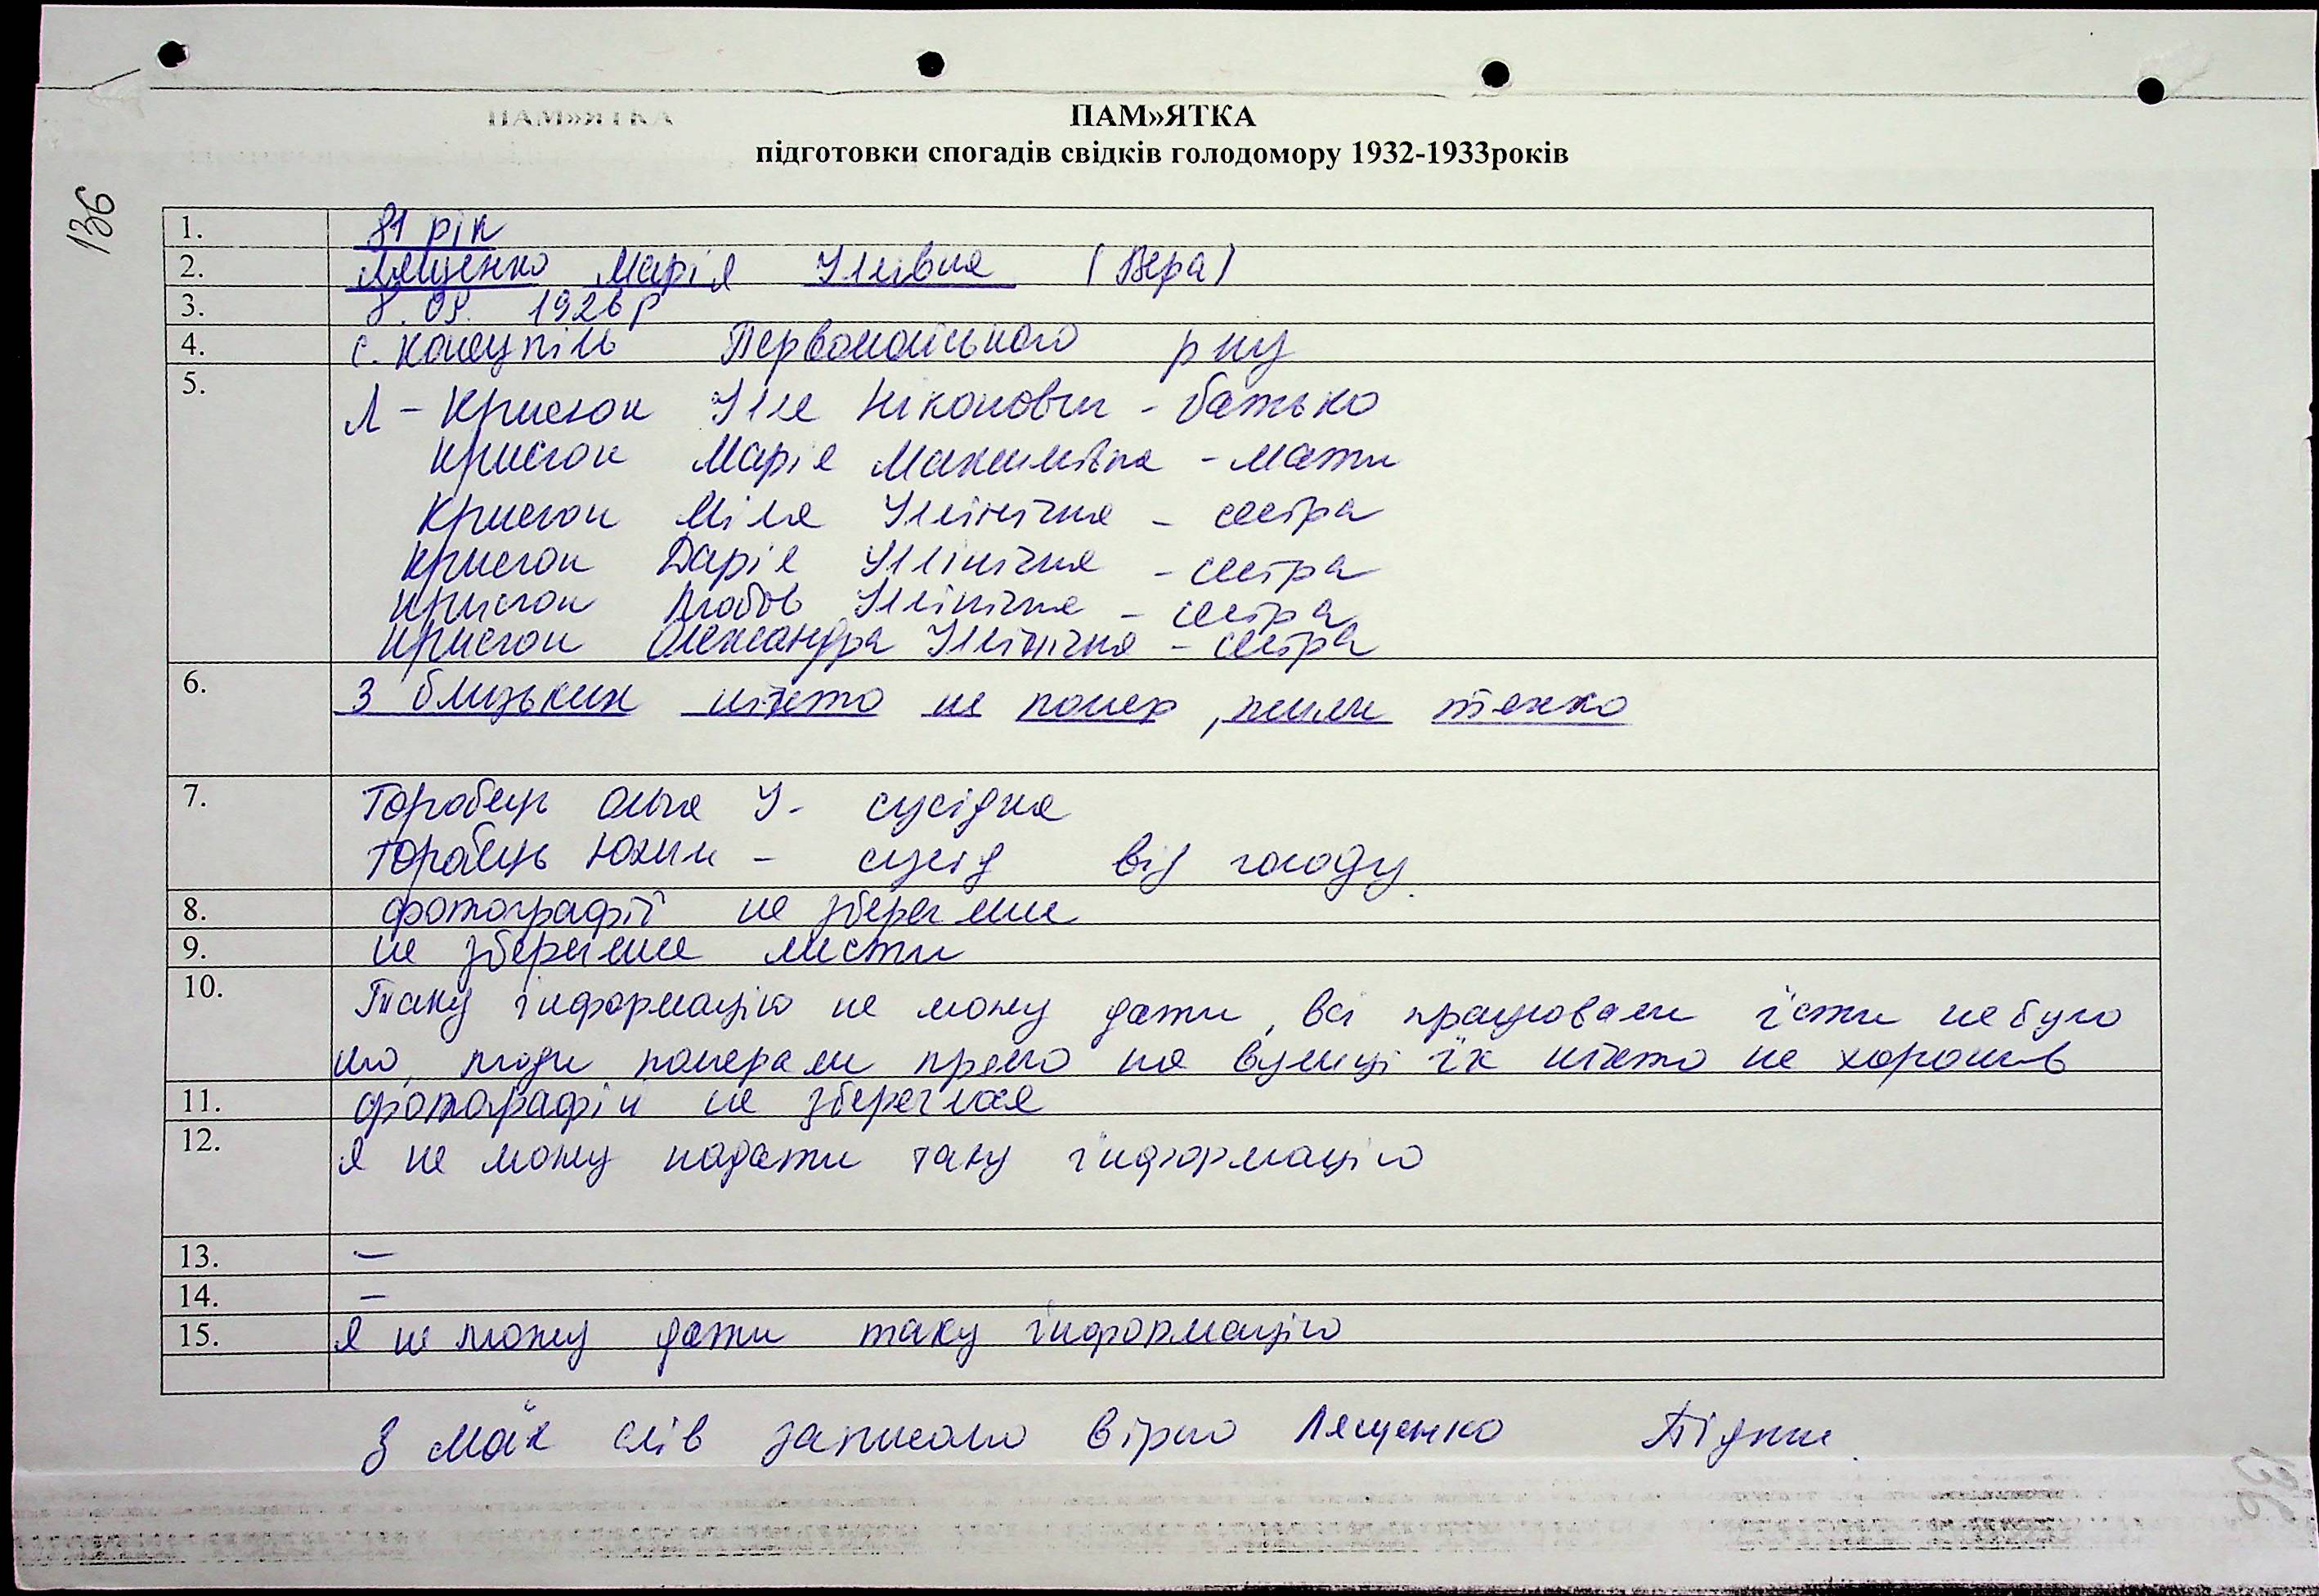 ПАМ»ЯТКА
підготовки спогадів свідків голодомору 1932-1933років
136
1. 81 рік
2. Лященко Марія Іллівна (Вера)
3. 8.09. 1926 р
4. с. Первомайського р ну
5. Л - Ілля Ніконович - батько
Марія Максимівна - мати
Міля Іллінічна - сестра
Дарія Іллінічна - сестра
Любов Іллінічна - сестра
Олександра Іллінічна - сестра
6. З близьких ніхто не помер, жили тяжко
7. Горобець Ольга У- сусідка
Горобець Юхим - сусід від голоду.
8. фотографії не зберегли
9. не зберегли листи
10. Таку інформацію не можу дати, всі працювали їсти не було
но, люди помирали прямо на вулиці їх ніхто не хоронив
11. фотографій не збереглося
12. Я не можу надати таку інформацію
13. –
14. –
15. Я не можу дати таку інформацію
З моїх слів записано вірно Лященко Підпис.